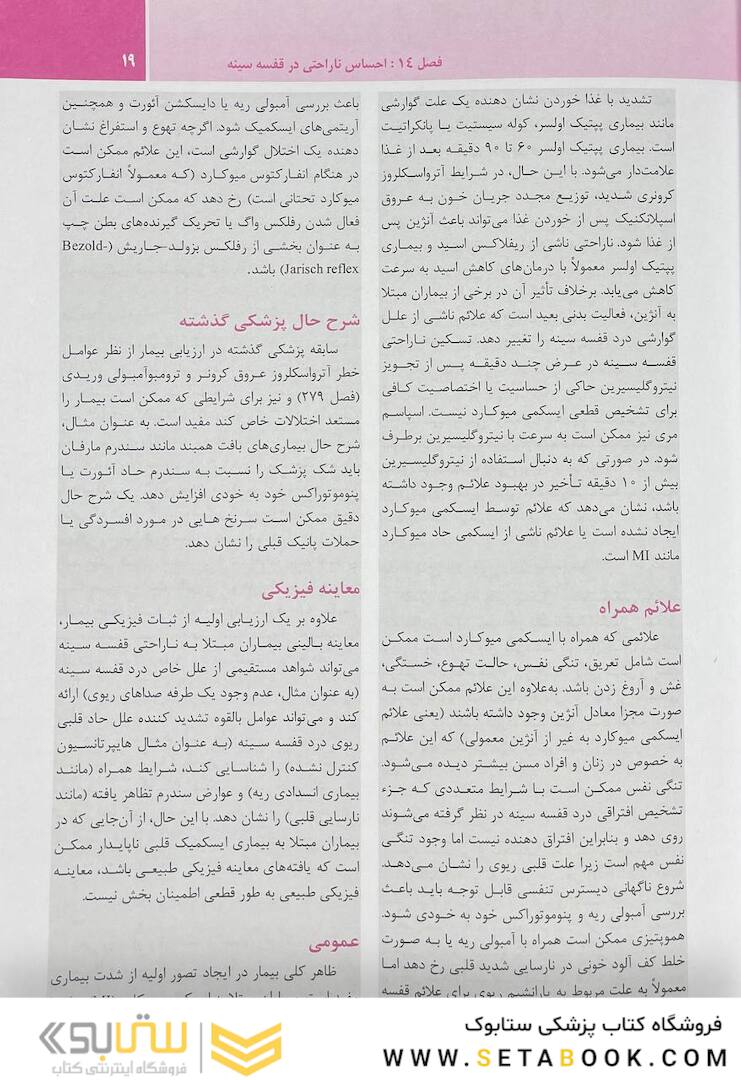 فصل ١٤ : احساس ناراحتی در قفسه سینه
۱۹
تشدید با غذا خوردن نشان دهنده یک علت گوارشی
مانند بیماری پپتیک اولسر، کوله سیستیت یا پانکراتیت
است. بیماری پپتیک اولسر ۶۰ تا ۹۰ دقیقه بعد از غذا
علامت‌دار می‌شود. با این حال، در شرایط آترواسکلروز
کرونری شدید، توزیع مجدد جریان خون به عروق
اسپلانکنیک پس از خوردن غذا می‌تواند باعث آنژین پس
از غذا شود. ناراحتی ناشی از ریفلاکس اسید و بیماری
پپتیک اولسر معمولاً با درمان‌های کاهش اسید به سرعت
کاهش می‌یابد. برخلاف تأثیر آن در برخی از بیماران مبتلا
به آنژین، فعالیت بدنی بعید است که علائم ناشی از علل
گوارشی درد قفسه سینه را تغییر دهد. تسکین ناراحتی
قفسه سینه در عرض چند دقیقه پس از تجویز
نیتروگلیسیرین حاکی از حساسیت یا اختصاصیت کافی
برای تشخیص قطعی ایسکمی میوکارد نیست. اسپاسم
مری نیز ممکن است به سرعت با نیتروگلیسیرین برطرف
شود. در صورتی که به دنبال استفاده از نیتروگلیسیرین
بیش از ۱۰ دقیقه تأخیر در بهبود علائم وجود داشته
باشد، نشان می‌دهد که علائم توسط ایسکمی میوکارد
ایجاد نشده است یا علائم ناشی از ایسکمی حاد میوکارد
مانند MI است.
علائم همراه
علائمی که همراه با ایسکمی میوکارد است ممکن
است شامل تعریق، تنگی نفس، حالت تهوع، خستگی،
غش و آروغ زدن باشد. به‌علاوه این علائم ممکن است به
صورت مجزا معادل آنژین وجود داشته باشند (یعنی علائم
ایسکمی میوکارد به غیر از آنژین معمولی) که این علائم
به خصوص در زنان و افراد مسن بیشتر دیده می‌شود.
تنگی نفس ممکن است با شرایط متعددی که جزء
تشخیص افتراقی درد قفسه سینه در نظر گرفته می‌شوند
روی دهد و بنابراین افتراق دهنده نیست اما وجود تنگی
نفس مهم است زیرا علت قلبی ریوی را نشان می‌دهد.
شروع ناگهانی دیسترس تنفسی قابل توجه باید باعث
بررسی آمبولی ریه و پنوموتوراکس خود به خودی شود.
هموپتیزی ممکن است همراه با آمبولی ریه یا به صورت
خلط کف آلود خونی در نارسایی شدید قلبی رخ دهد اما
معمولاً به علت مربوط به پارانشیم ریوی برای علائم قفسه
باعث بررسی آمبولی ریه یا دایسکشن آئورت و همچنین
آریتمی‌های ایسکمیک شود. اگرچه تهوع و استفراغ نشان
دهنده یک اختلال گوارشی است، این علائم ممکن است
در هنگام انفارکتوس میوکارد (که معمولاً انفارکتوس
میوکارد تحتانی است) رخ دهد که ممکن است علت آن
فعال شدن رفلکس واگ یا تحریک گیرنده‌های بطن چپ
به عنوان بخشی از رفلکس بزولد-جاریش (Bezold-
Jarisch reflex) باشد.
شرح حال پزشکی گذشته
سابقه پزشکی گذشته در ارزیابی بیمار از نظر عوامل
خطر آترواسکلروز عروق کرونر و ترومبوآمبولی وریدی
(فصل ۲۷۹) و نیز برای شرایطی که ممکن است بیمار را
مستعد اختلالات خاص کند مفید است. به عنوان مثال،
شرح حال بیماری‌های بافت همبند مانند سندرم مارفان
باید شک پزشک را نسبت به سندرم حاد آئورت یا
پنوموتوراکس خود به خودی افزایش دهد. یک شرح حال
دقیق ممکن است سرنخ هایی در مورد افسردگی یا
حملات پانیک قبلی را نشان دهد.
معاینه فیزیکی
علاوه بر یک ارزیابی اولیه از ثبات فیزیکی بیمار،
معاینه بالینی بیماران مبتلا به ناراحتی قفسه سینه
می‌تواند شواهد مستقیمی از علل خاص درد قفسه سینه
(به عنوان مثال، عدم وجود یک طرفه صداهای ریوی) ارائه
کند و می‌تواند عوامل بالقوه تشدید کننده علل حاد قلبی
ریوی درد قفسه سینه (به عنوان مثال هایپرتانسیون
کنترل نشده) را شناسایی کند، شرایط همراه (مانند
بیماری انسدادی ریه) و عوارض سندرم تظاهر یافته (مانند
نارسایی قلبی) را نشان دهد. با این حال، از آن‌جایی که در
بیماران مبتلا به بیماری ایسکمیک قلبی ناپایدار ممکن
است که یافته‌های معاینه فیزیکی طبیعی باشد، معاینه
فیزیکی طبیعی به طور قطعی اطمینان بخش نیست.
عمومی
ظاهر کلی بیمار در ایجاد تصور اولیه از شدت بیماری
فروشگاه کتاب پزشکی ستابوک
WWW.SETABOOK.COM
ستابوک
فروشگاه اینترنتی کتاب